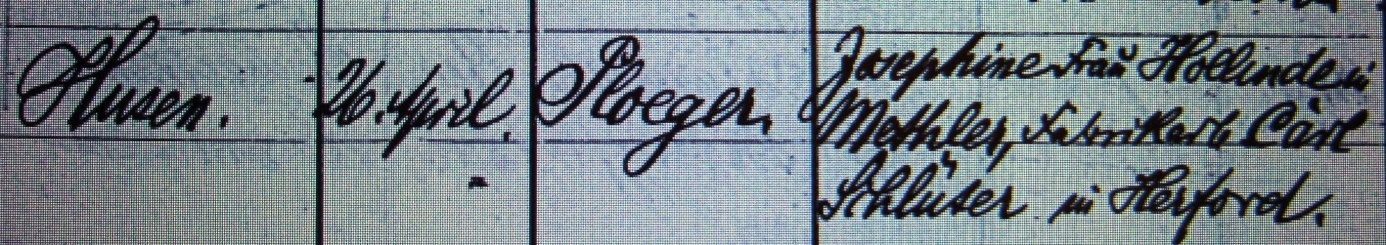 Husen.
26. April.
Ploeger.
Josephine Frau Hollinde in
Methler, Fabrikarb. Carl
Schlüter in Herford.